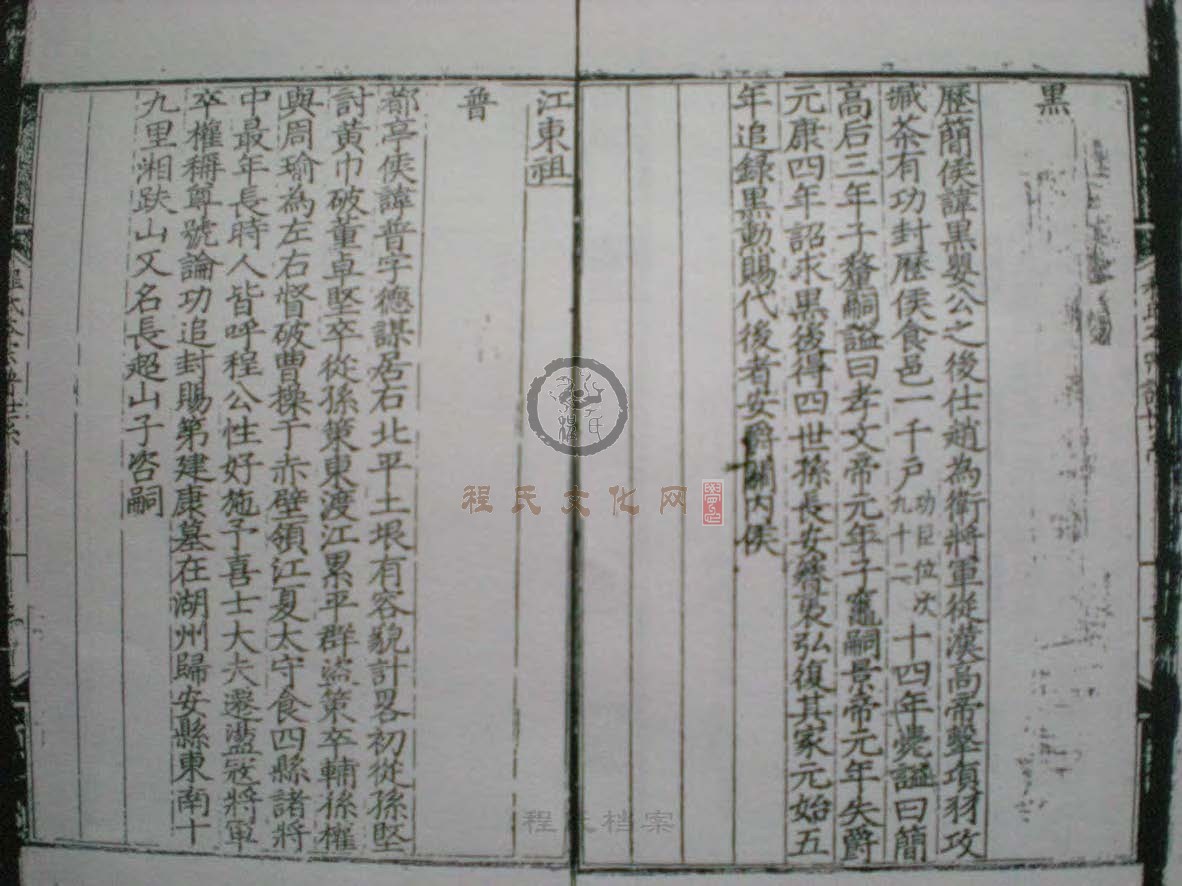 黑
歷簡侯諱黑嬰公之後仕趙為衛將軍從漢高帝擊項羽攻
臧荼有功封歷侯食邑一千戶功臣位次九十二十四年薨謚曰簡
高后三年子釐嗣謚曰孝文帝元年子竈嗣景帝元年失爵
元康四年詔求黑後得四世孫長安簪褭弘復其家元始五
年追錄黑勳賜代後者安爵關內侯
江東祖
普
都亭侯諱普字德謀居右北平土垠有容貌計畧初從孫堅
討黃巾破董卓堅卒從孫策東渡江累平群盜策卒輔孫權
與周瑜為左右督破曹操于赤壁領江夏太守食四縣諸將
中最年長時人皆呼程公性好施予喜士大夫遷盪宼將軍
卒權稱尊號論功追封賜第建康墓在湖州歸安縣東南十
九里湘趺山又名長超山子咨嗣
程氏文化网
程氏档案